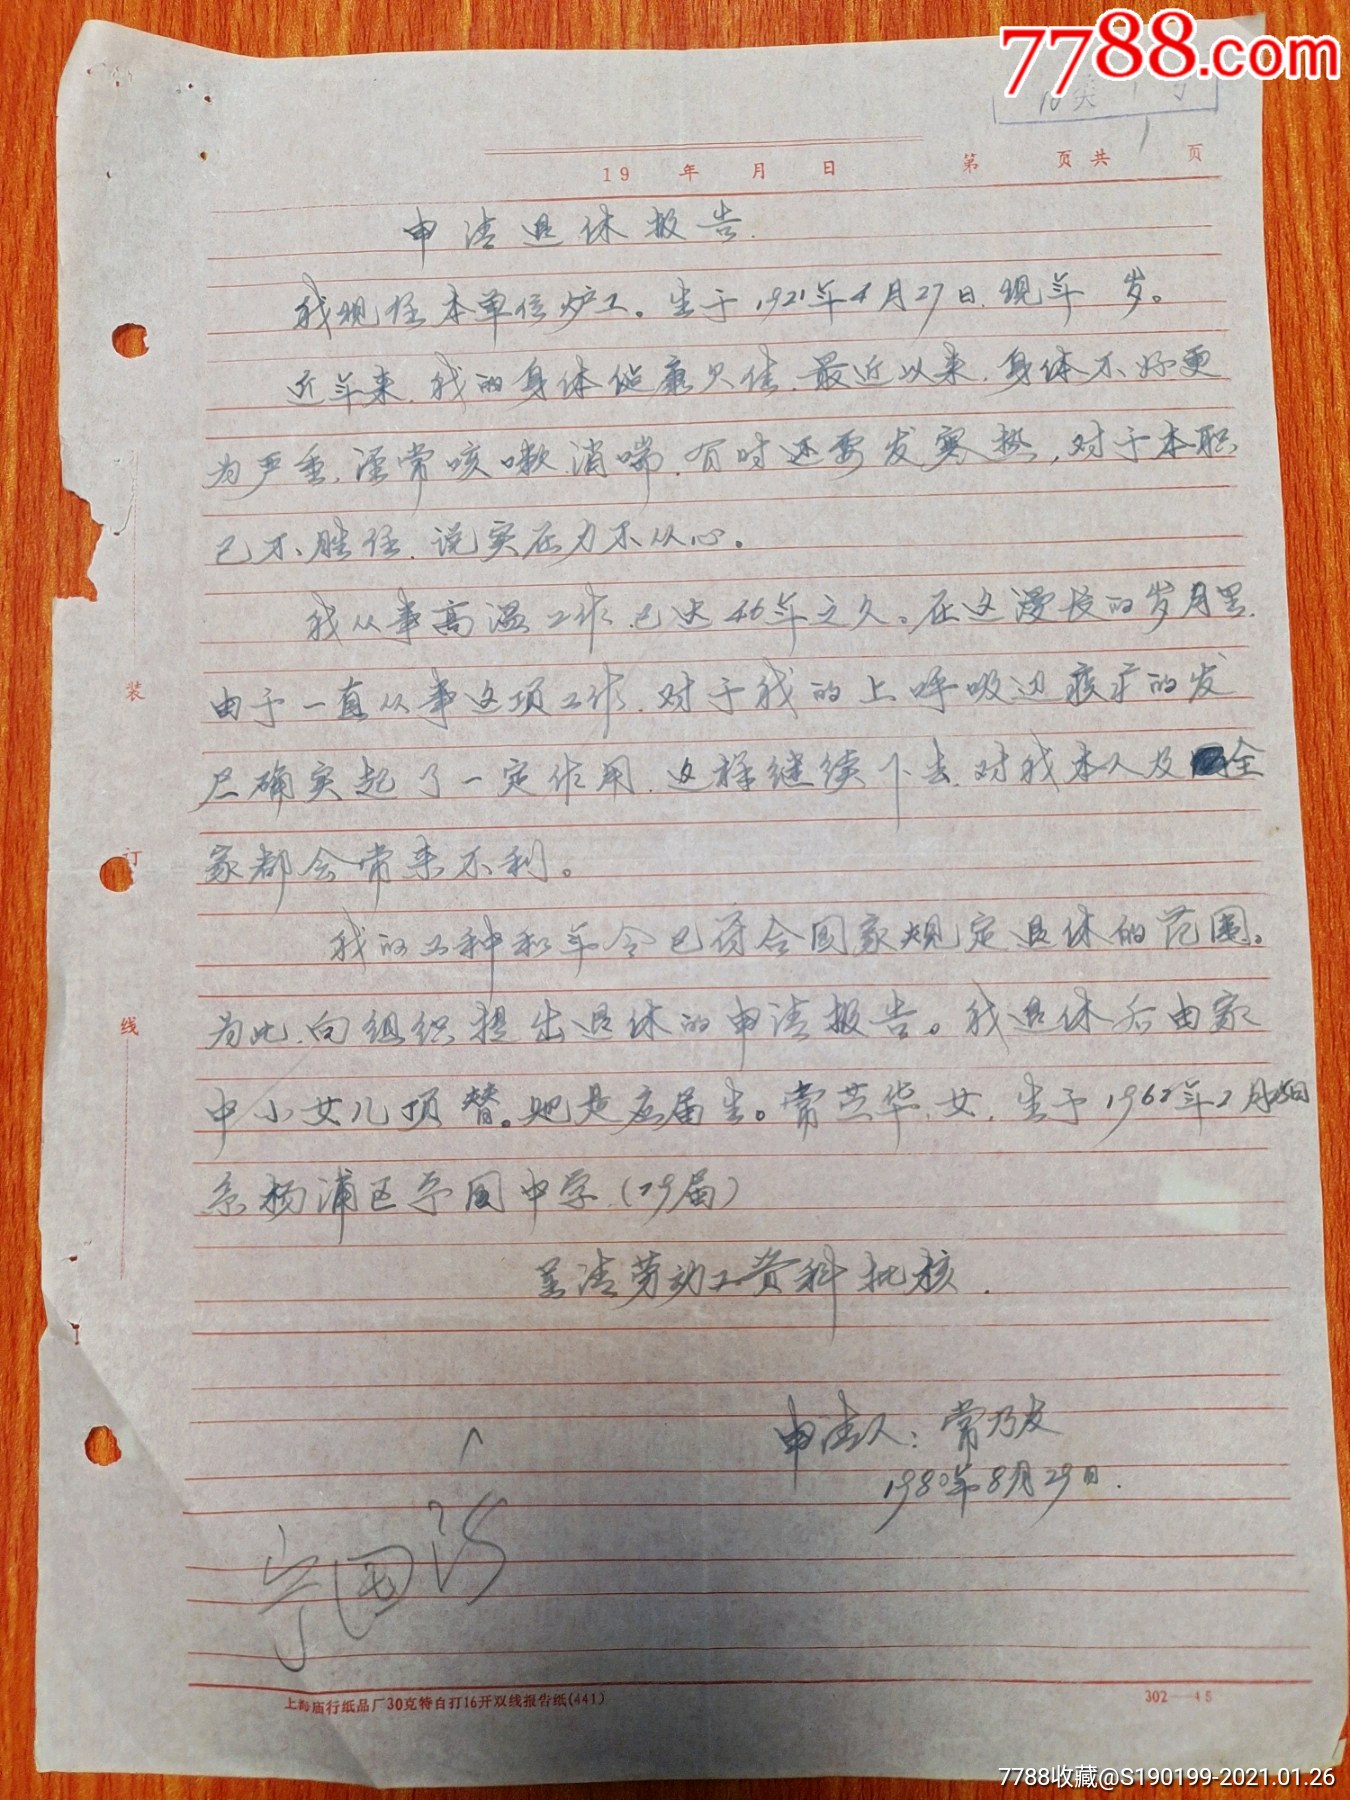 7788.com
19 年 月 日 第 页共 1 页
申请退休报告.
我现任本单位炉工。生于1921年4月27日.现年 岁。
近年来.我的身体健康欠佳.最近以来.身体不好更
为严重.经常咳嗽消喘.有时还要发寒热,对于本职
已不胜任.说实在力不从心。
我从事高温工作.已达46年之久。在这漫长的岁月里.
由于一直从事这项工作.对于我的上呼吸道疾病的发
展确实起了一定作用.这样继续下去.对我本人及全
家都会带来不利。
我的工种和年令已符合国家规定退休的范围。
为此.向组织提出退休的申请报告。我退休后由家
中小女儿顶替。她是应届生。常兰华.女.生于1962年2月 日
系杨浦区 中学.(79届)
呈请劳动工资科批核.
申请人:常乃友
1980年8月29日.
装
订
线
上海庙行纸品厂30克特白打16开双线报告纸(441)
302—45
7788收藏@S190199-2021.01.26